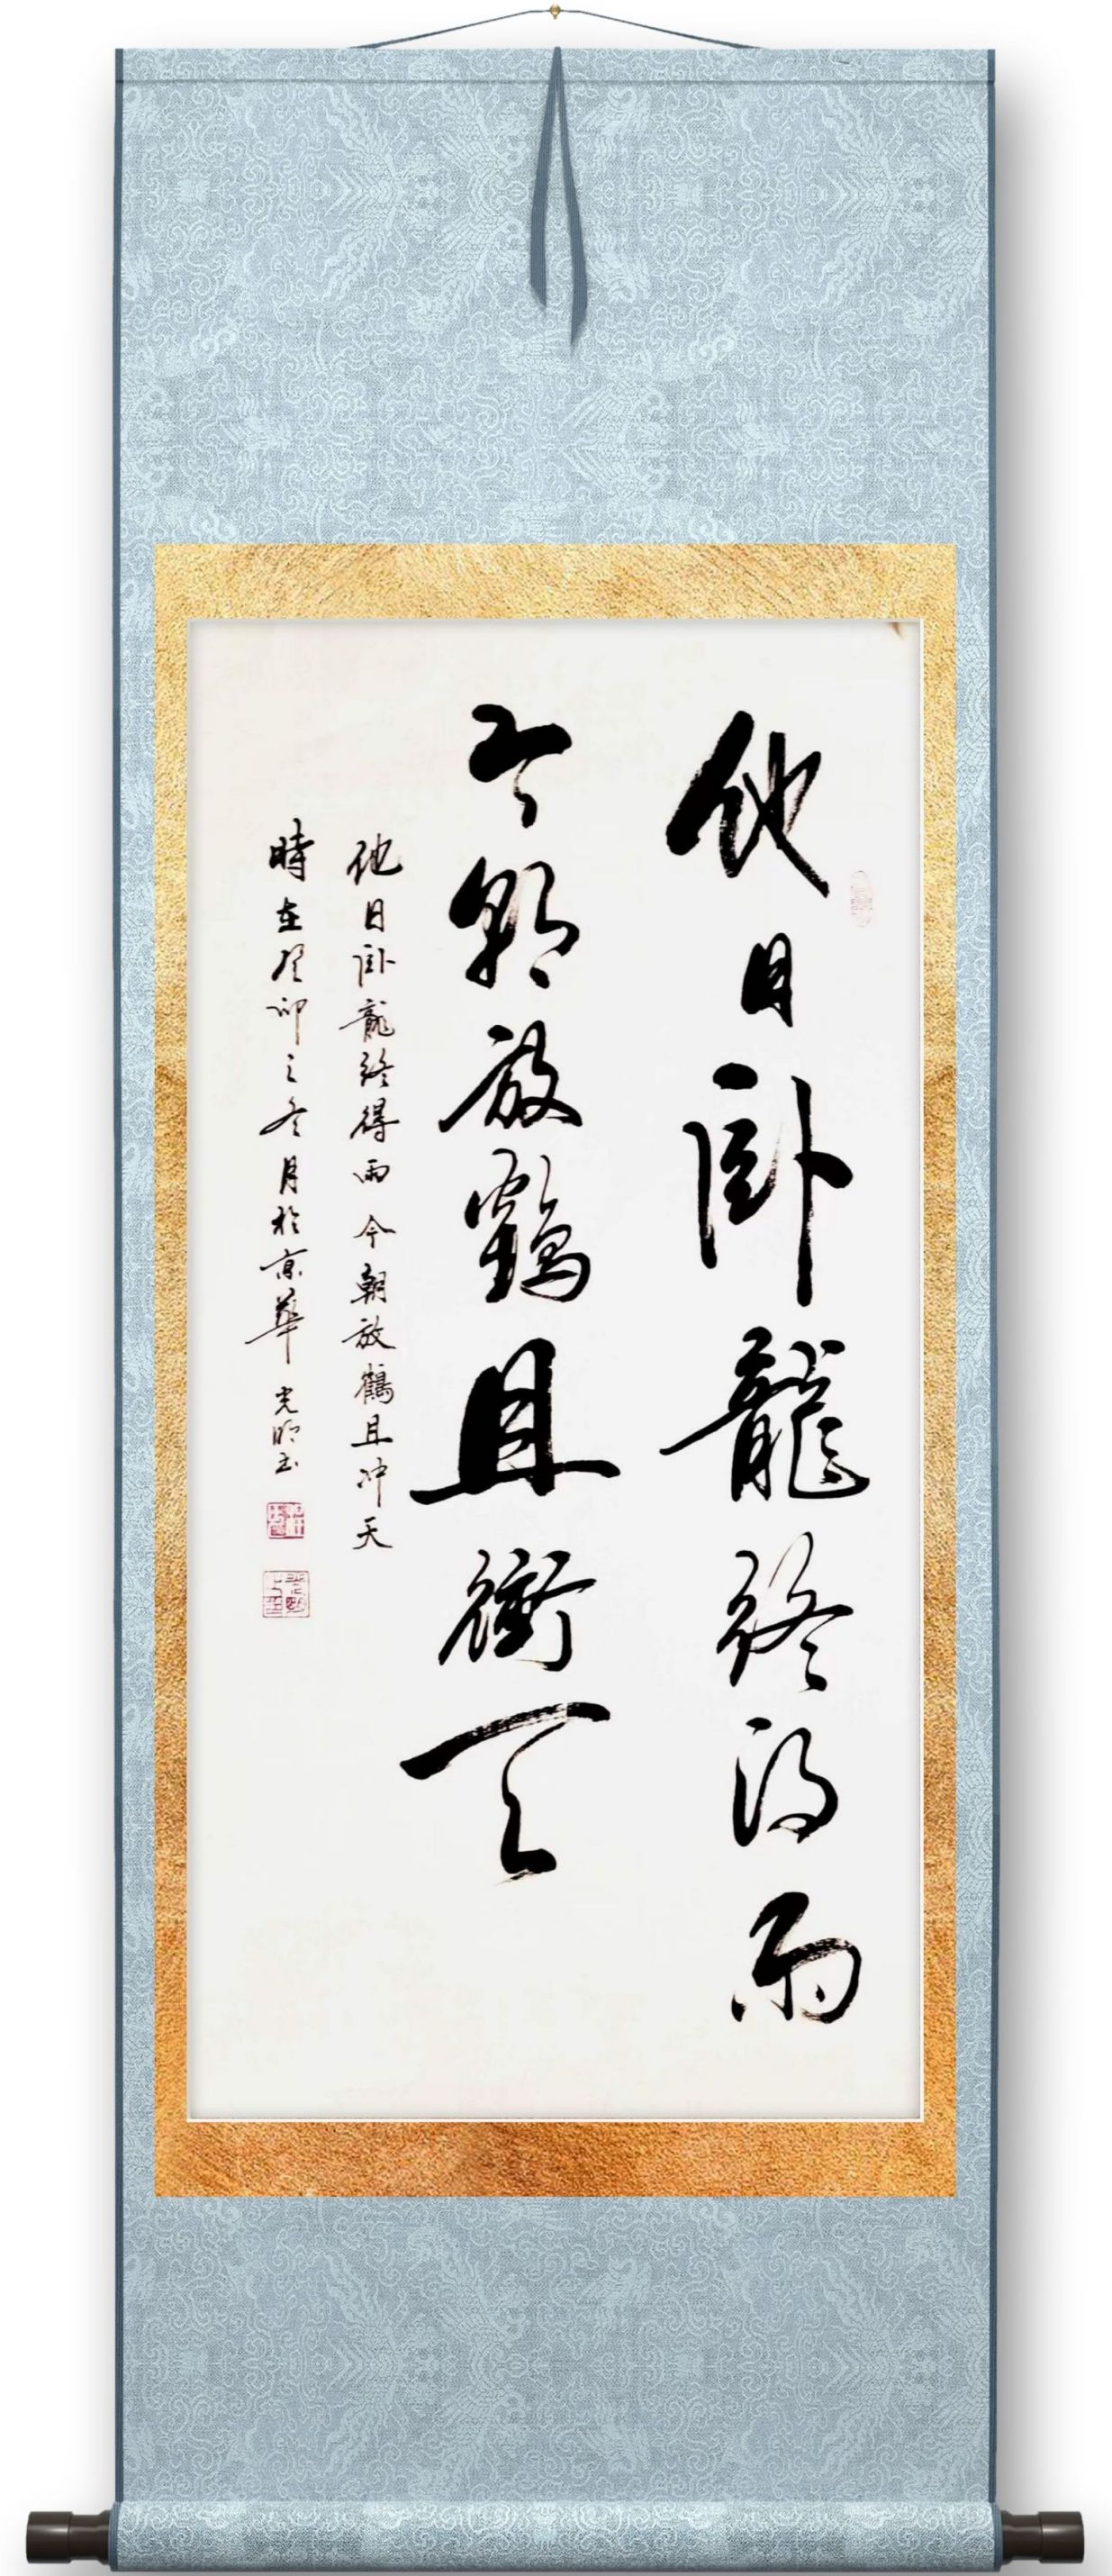 他日卧龍終得雨
今朝放鶴且衝天
他日卧龍終得雨今朝放鶴且冲天
時在癸卯之冬月於京華 光明書